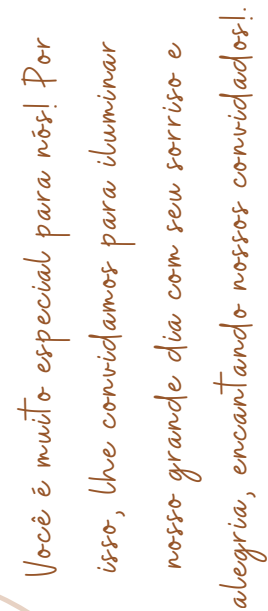 Você é muito especial para nós! Por
isso, lhe convidamos para iluminar
nosso grande dia com seu sorriso e
alegria, encantando nossos convidados!.